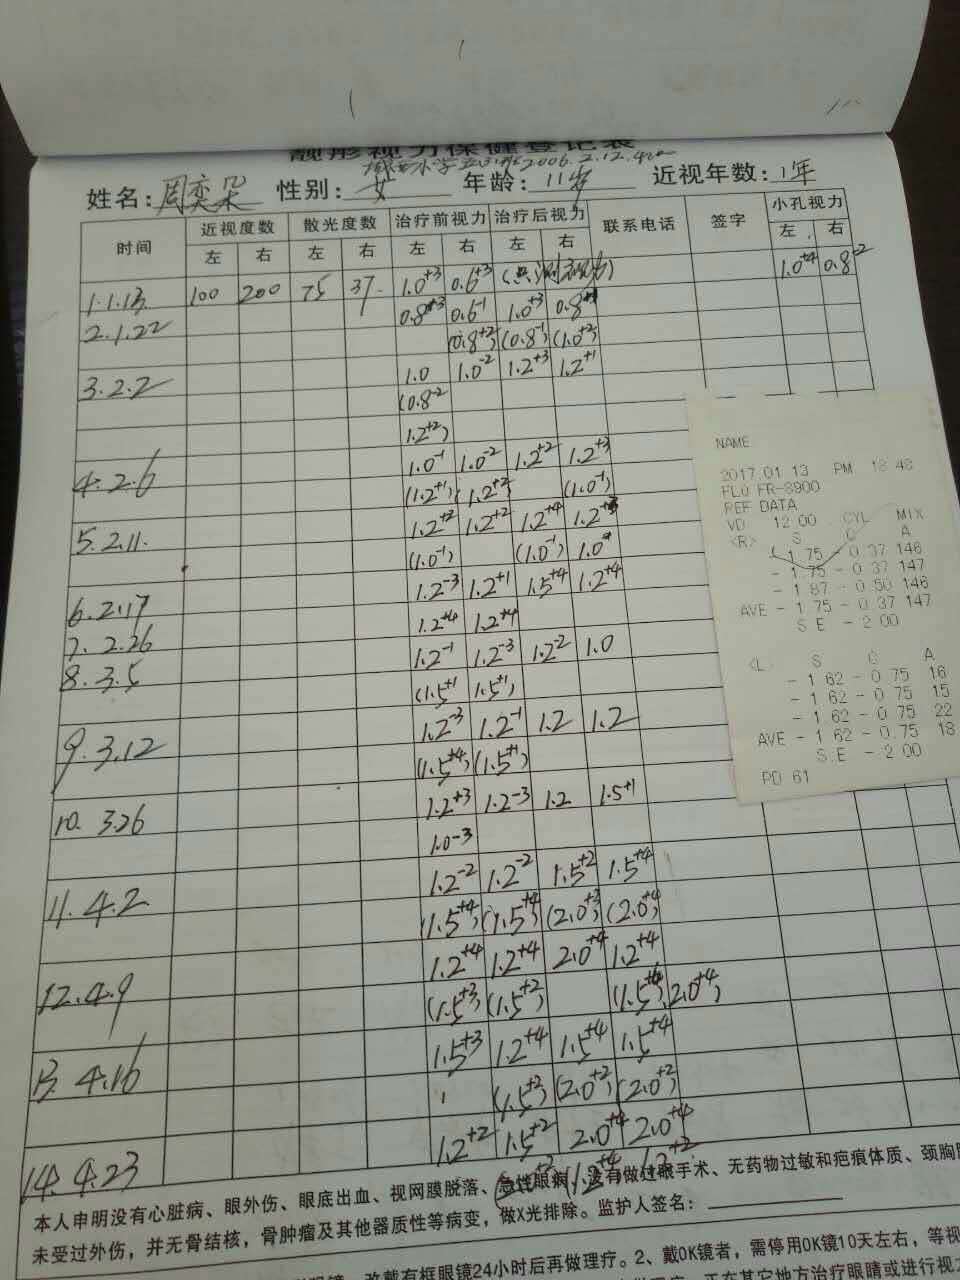 靓彤视力保健登记表
小学 2006.2.12.
姓名: 周奕朵 性别: 女 年龄: 11岁 近视年数: 1年
时间 近视度数 散光度数 治疗前视力 治疗后视力 联系电话 签字 小孔视力
左 右 左 右 左 右 左 右 左 右
1.1.13 100 200 75 37 1.0+3 0.6+3 1.0+4 0.8-2
2.1.22 0.8+3 0.6-1 1.0+3
(0.8+2) (0.8-1) (1.0+2)
3.2.2 1.0 1.0-2 1.2+3 1.2+1
(0.8-2
1.2+2)
4.2.6 1.0-1 1.0-2 1.2+2 1.2+3
(1.2+1) (1.2+2) (1.0-1)
5.2.11. 1.2+2 1.2+2 1.2+4
(1.0-1) (1.0-1) 1.0
6.2.17 1.2-3 1.2+1 1.5+4 1.2+4
7.2.26 1.2+4 1.2+4
8.3.5 1.2-1 1.2-3 1.2-2 1.0
(1.5+1 1.5+1)
9.3.12 1.2-3 1.2-1 1.2 1.2
(1.5+4) (1.5+1)
10. 3.26 1.2+3 1.2-3 1.2 1.5+1
1.0-3
11.4.2 1.2-2 1.2-2 1.5+2 1.5+4
(1.5+4) (1.5+4) (2.0+3) (2.0+4)
12.4.9 1.2+4 1.2+4 2.0+4 1.2+4
(1.5+3) (1.5+2) 2.0+4)
13. 4.16 1.5+3 1.2+4 1.5+4 1.5+4
(1.5+2) (2.0+2) (2.0+2)
14.4.23 1.2+2 1.5+2 2.0+4 2.0+4
(1.2+4 1.2+2
NAME
2017.01.13 PM 18:48
FLU FR-8900
REF DATA
VD 12.00 CYL MIX
<R> S C A
- 1.75 - 0.37 146
- 1.75 - 0.37 147
- 1.87 - 0.50 146
AVE - 1.75 - 0.37 147
S.E - 2.00
<L> S C A
- 1.62 - 0.75 16
- 1.62 - 0.75 15
- 1.62 - 0.75 22
AVE - 1.62 - 0.75 18
S.E - 2.00
PD 61
本人申明没有心脏病、眼外伤、眼底出血、视网膜脱落、急性眼病、没有做过眼手术、无药物过敏和疤痕体质、颈胸
未受过外伤，并无骨结核，骨肿瘤及其他器质性等病变，做X光排除。监护人签名：
改戴有框眼镜24小时后再做理疗。2、戴OK镜者，需停用OK镜10天左右，等视
正在其它地方治疗眼睛或进行视